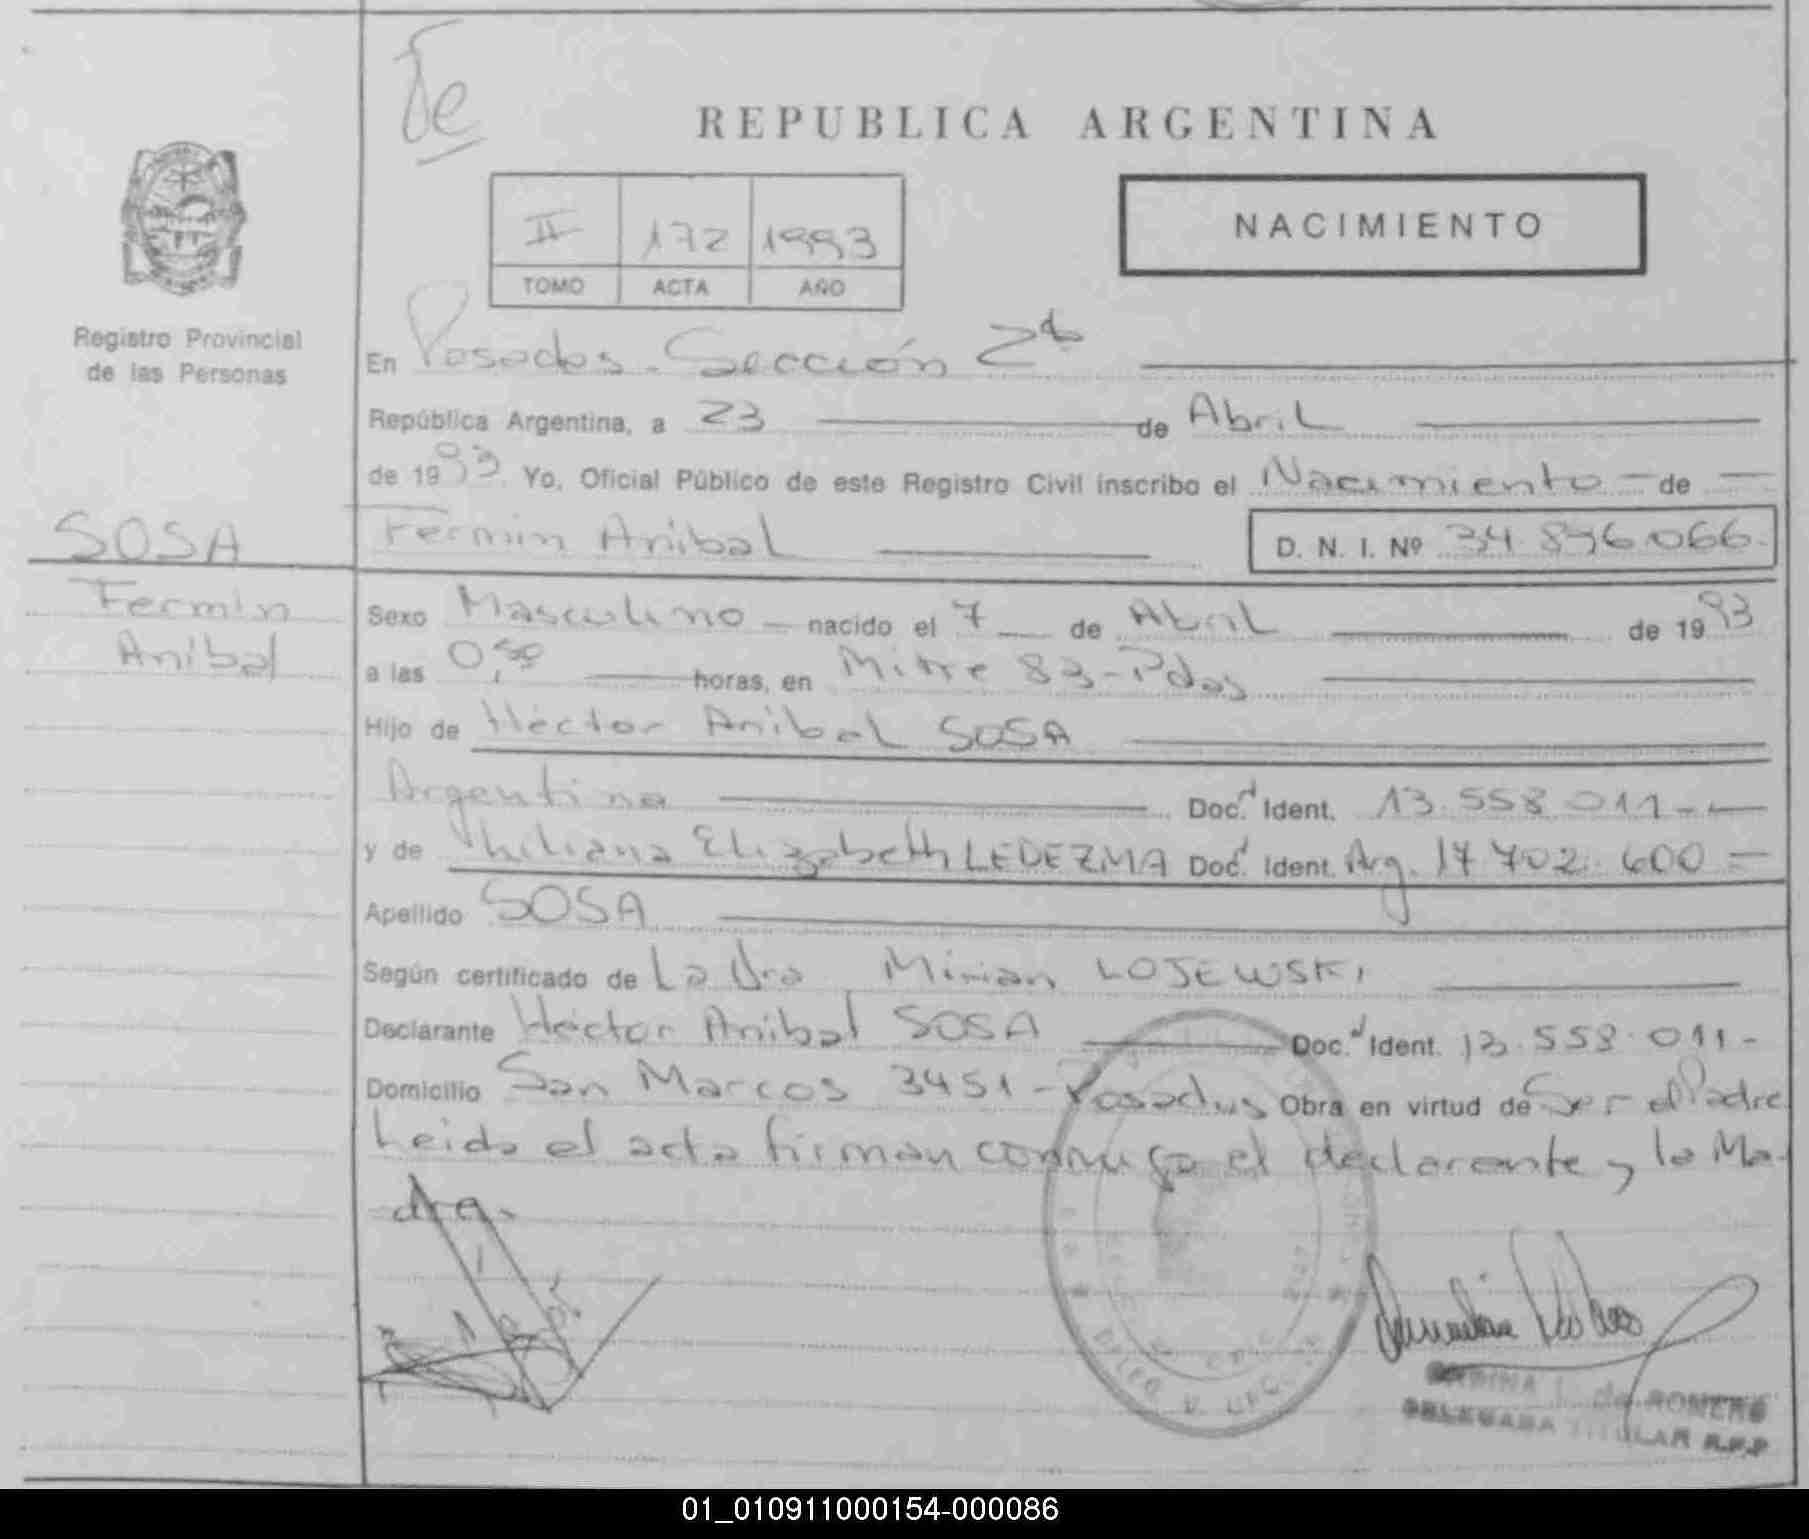 De
REPUBLICA ARGENTINA
NACIMIENTO
II 172 1993
TOMO ACTA AÑO
Registro Provincial
de las Personas
En Posadas. Sección 2ª
República Argentina, a 23 de Abril
de 1993. Yo, Oficial Público de este Registro Civil inscribo el Nacimiento de
SOSA
Fermin Anibal
D. N. I. Nº 34.896.066.
Fermin
Anibal
Sexo Masculino nacido el 7 de Abril de 1993
a las 0,50 horas, en Mitre 83-Pdas
Hijo de Héctor Anibal SOSA
Argentino Doc. Ident. 13.558.011-
y de Elizabeth LEDEZMA Doc. Ident. Arg. 17.702.600
Apellido SOSA
Según certificado de La Dra Mirian LOJEWSKI
Declarante Héctor Anibal SOSA Doc. Ident. 13.558.011-
Domicilio San Marcos 3451-Posadas Obra en virtud de Ser el Padre
Leida el acta firman conmigo el declarante y la Ma-
dre.
de ROMERO
DELEGADA TITULAR R.P.P
01_010911000154-000086